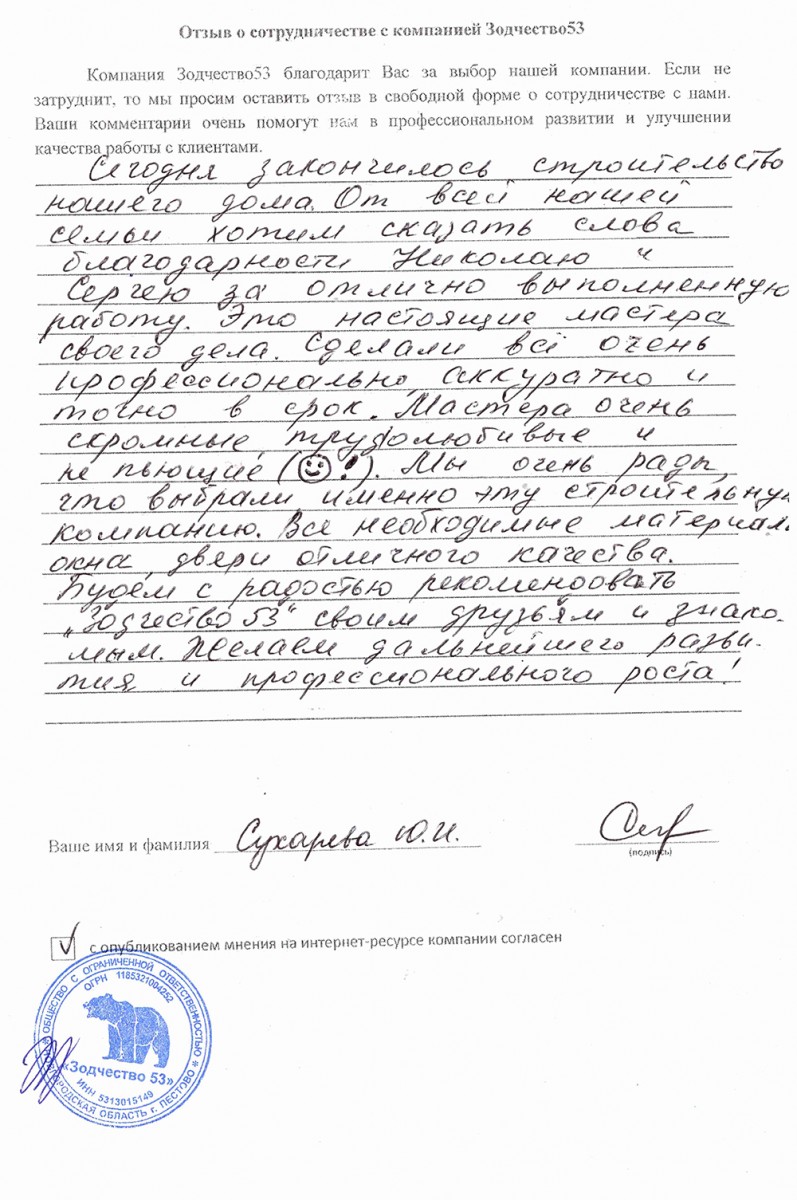 Отзыв о сотрудничестве с компанией Зодчество53
Компания Зодчество53 благодарит Вас за выбор нашей компании. Если не
затруднит, то мы просим оставить отзыв в свободной форме о сотрудничестве с нами.
Ваши комментарии очень помогут нам в профессиональном развитии и улучшении
качества работы с клиентами.
Сегодня закончилось строительство
нашего дома. От всей нашей
семьи хотим сказать слова
благодарности Николаю и
Сергею за отлично выполненную
работу. Это настоящие мастера
своего дела. Сделали всё очень
профессионально, аккуратно и
точно в срок. Мастера очень
скромные, трудолюбивые и
не пьющие (☺!). Мы очень рады,
что выбрали именно эту строительную
компанию. Все необходимые материал
окна, двери отличного качества.
Будем с радостью рекомендовать
„Зодчество 53" своим друзьям и знако-
мым. Желаем дальнейшего разви-
тия и профессионального роста!
Ваше имя и фамилия Сухарева Ю.И.
(подпись)
с опубликованием мнения на интернет-ресурсе компании согласен
ОБЩЕСТВО С ОГРАНИЧЕННОЙ ОТВЕТСТВЕННОСТЬЮ
ОГРН 1185321004252
«Зодчество 53»
ИНН 5313015149
НОВГОРОДСКАЯ ОБЛАСТЬ г. ПЕСТОВО